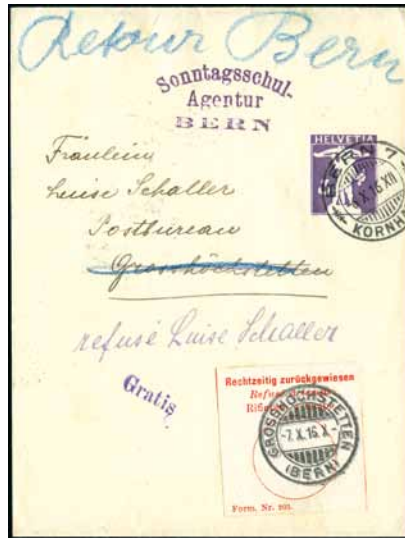 Retour Bern
Sonntagsschul-
Agentur
BERN
HELVETIA
BERN 7
X.16.XII
KORNH
Fräulein
Luise Schaller
Postbureau
Grosshöchstetten
refusé Luise Schaller
Gratis
Rechtzeitig zurückgewiesen
GROSSHÖCHSTETTEN
-7.X.16.X-
(BERN)
Form. Nr.